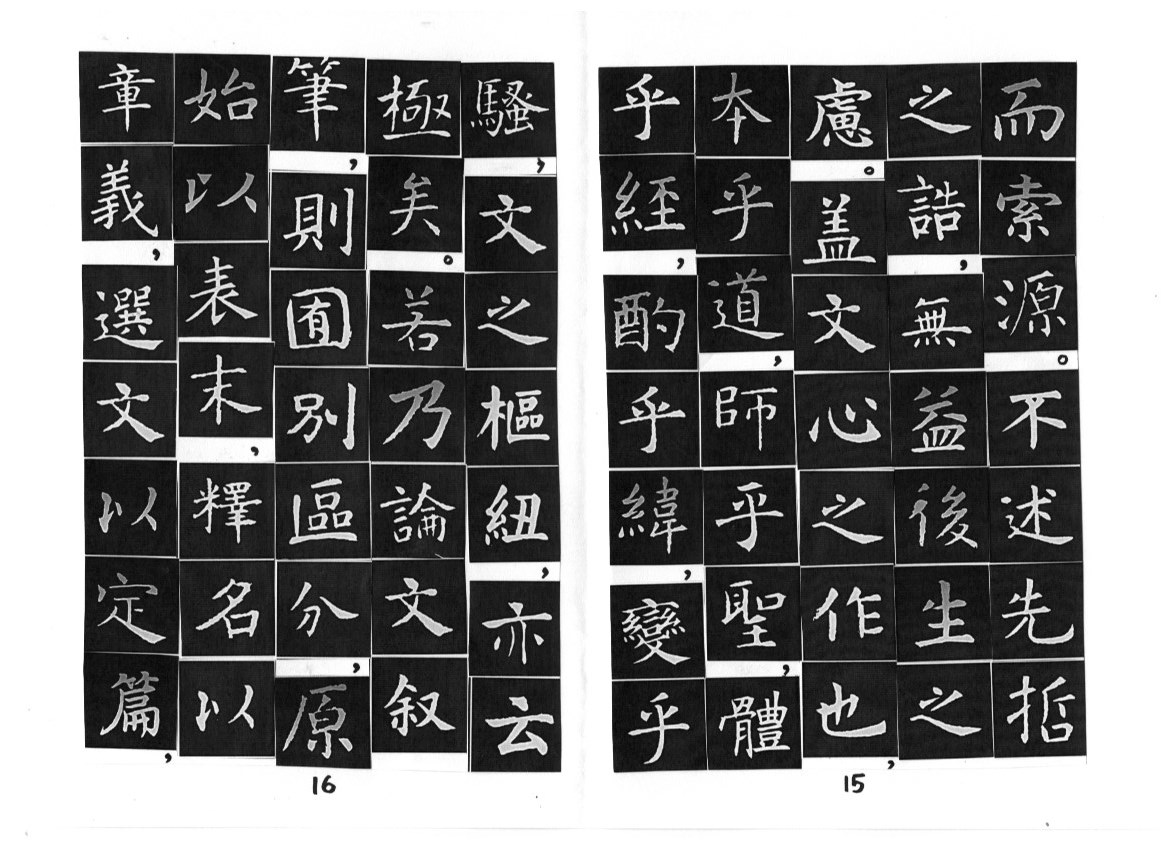 而索源。不述先哲
之誥，無益後生之
慮。盖文心之作也，
本乎道，師乎聖，體
乎經，酌乎緯，變乎
15
騷，文之樞紐，亦云
極矣。若乃論文叙
筆，則囿別區分，原
始以表末，釋名以
章義，選文以定篇，
16